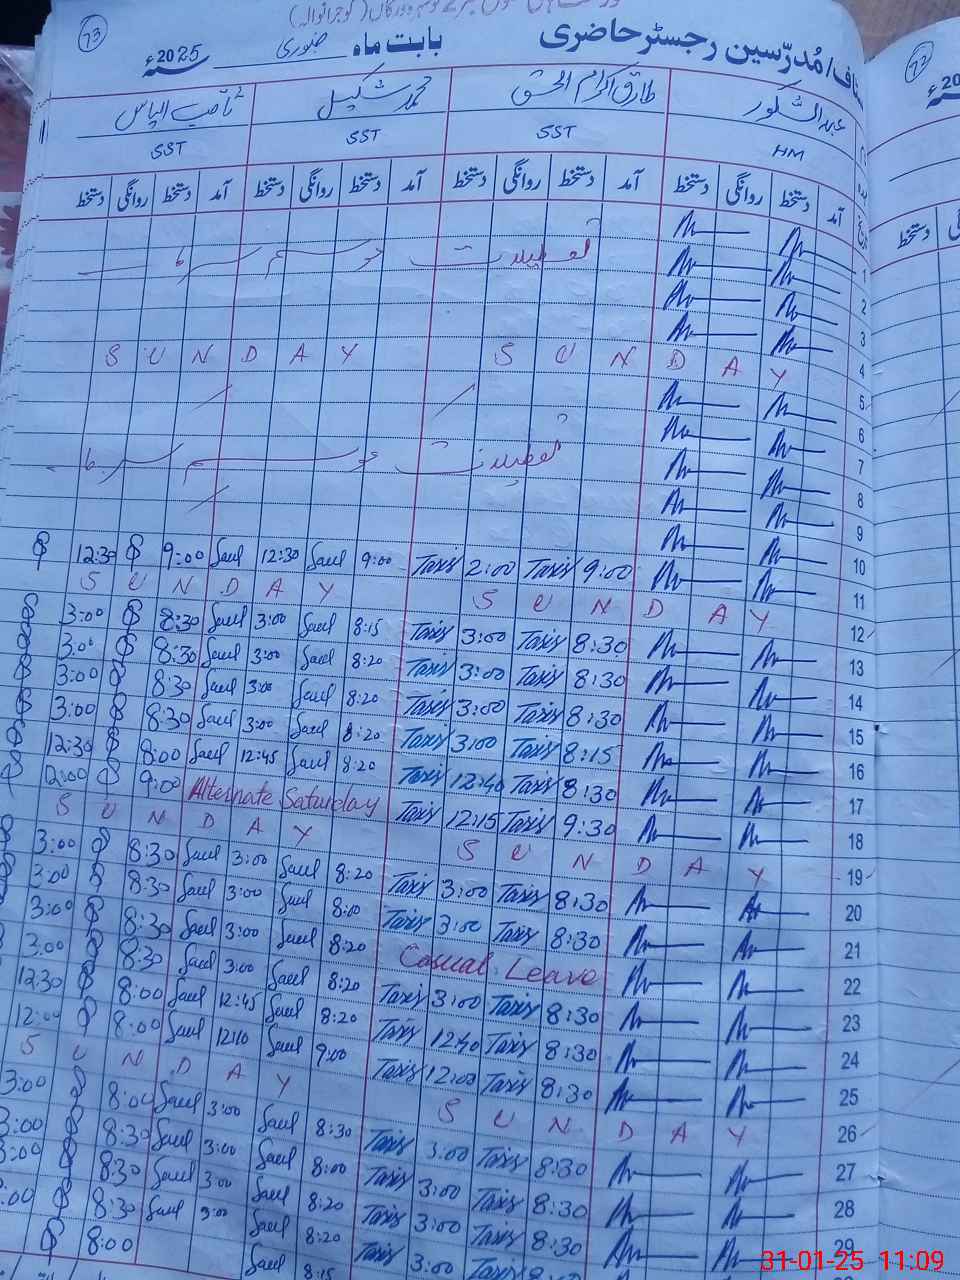 73
سٹاف/مُدرّسین رجسٹر حاضری بابت ماہ جنوری 2025ء
عبدالشکور طارق اکرام الحق محمد شکیل ثاقب الیاس
HM SST SST SST
آمد دستخط روانگی دستخط آمد دستخط روانگی دستخط آمد دستخط روانگی دستخط آمد دستخط روانگی دستخط
1 تعطیلات موسم سرما
2
3
4
5 SUNDAY SUNDAY
6
7
8 تعطیلات موسم سرما
9
10
11 9:00 Taxis 2:00 Taxis 9:00 Saul 12:30 Saul 9:00 12:30
12 SUNDAY SUNDAY
13 8:30 Taxis 3:00 Taxis 8:15 Saul 3:00 Saul 8:30 3:00
14 8:30 Taxis 3:00 Taxis 8:20 Saul 3:00 Saul 8:30 3:00
15 8:30 Taxis 3:00 Taxis 8:20 Saul 3:00 Saul 8:30 3:00
16 8:15 Taxis 3:00 Taxis 8:20 Saul 3:00 Saul 8:30 3:00
17 8:30 Taxis 12:40 Taxis 8:20 Saul 12:45 Saul 8:00 12:30
18 9:30 Taxis 12:15 Taxis Alternate Saturday 9:00 12:00
19 SUNDAY SUNDAY
20 8:30 Taxis 3:00 Taxis 8:20 Saul 3:00 Saul 8:30 3:00
21 8:30 Taxis 3:00 Taxis 8:00 Saul 3:00 Saul 8:30 3:00
22 Casual Leave 8:20 Saul 3:00 Saul 8:30 3:00
23 8:30 Taxis 3:00 Taxis 8:20 Saul 3:00 Saul 8:30 3:00
24 8:30 Taxis 12:40 Taxis 8:20 Saul 12:45 Saul 8:00 12:30
25 8:30 Taxis 12:00 Taxis 9:00 Saul 12:10 Saul 8:00 12:00
26 SUNDAY SUNDAY
27 8:30 Taxis 3:00 Taxis 8:30 Saul 3:00 Saul 8:00 3:00
28 8:30 Taxis 3:00 Taxis 8:00 Saul 3:00 Saul 8:30 3:00
29 8:30 Taxis 3:00 Taxis 8:20 Saul 3:00 Saul 8:30 3:00
3:00 Taxis 8:20 Saul 3:00 Saul 8:30
8:15 Saul 8:00
72
دستخط
31-01-25 11:09